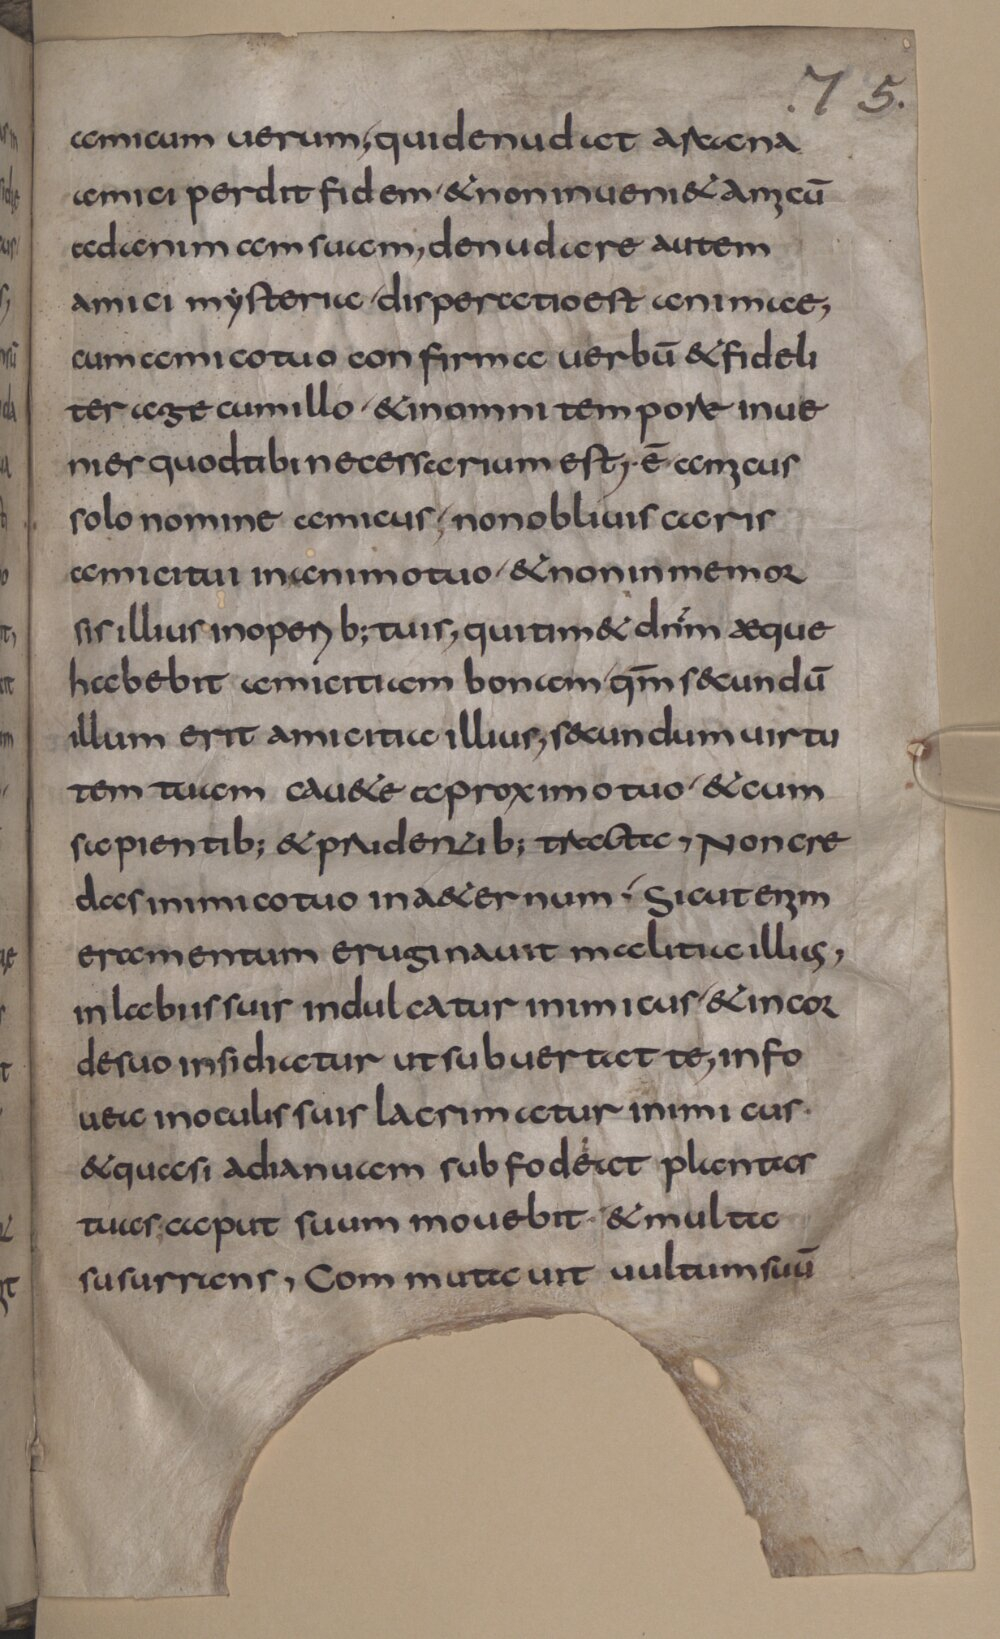 75.
amicum uerum, qui denudat arcana
amici perdit fidem & non inueni& amicū
ad animam suam, denudare autem
amici mysteria disperatio est animae,
cum amico tuo confirma uerbū & fideli
ter age cum illo & in omni tempore inue
nies quod tibi necessarium est, ē amicus
solo nomine amicus, non obliuiscaris
amici tui in animo tuo & non inmemor
sis illius in operib; tuis, qui tim& dnm aeque
habebit amicitiam bonam qm̄ s&undū
illum erit amicitia illius, s&undum uirtu
tem tuam caue a proximo tuo & cum
sapientib; & prudentib; tracta, Non cre
das inimico tuo in a&ernum. Sicut enim
eramentum eruginauit malitia illius,
in labiis suis indulcatur inimicus & in cor
de suo insidiatur ut subuertat te, in fo
uea in oculis suis lacrimatur inimicus.
& quasi adianuam subfodeat plantas
tuas, caput suum mouebit & multa
susurrans, Commutauit uultum suū